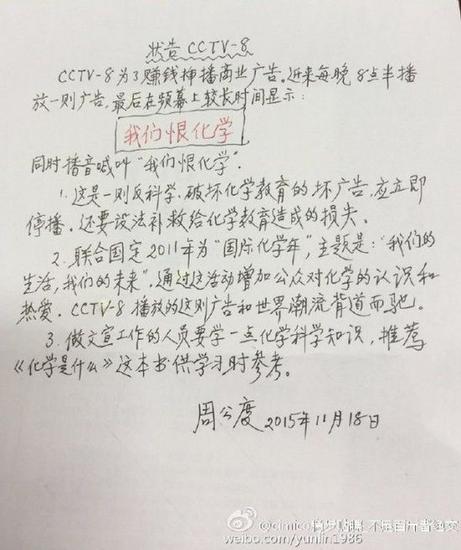 状告 CCTV-8
CCTV-8为了赚钱抻播商业广告。近来每晚8点半播
放一则广告,最后在频幕上较长时间显示:
我们恨化学
同时播音喊叫“我们恨化学”.
1. 这是一则反科学,破坏化学教育的坏广告,应立即
停播。还要设法补救给化学教育造成的损失。
2. 联合国定2011年为“国际化学年”,主题是:“我们的
生活,我们的未来”。通过这活动增加公众对化学的认识和
热爱。CCTV-8播放的这则广告和世界潮流背道而驰。
3. 做文宣工作的人员要学一点化学科学知识,推荐
《化学是什么》这本书供学习时参考。
周公度 2015年11月18日
weibo.com/yunlin1986